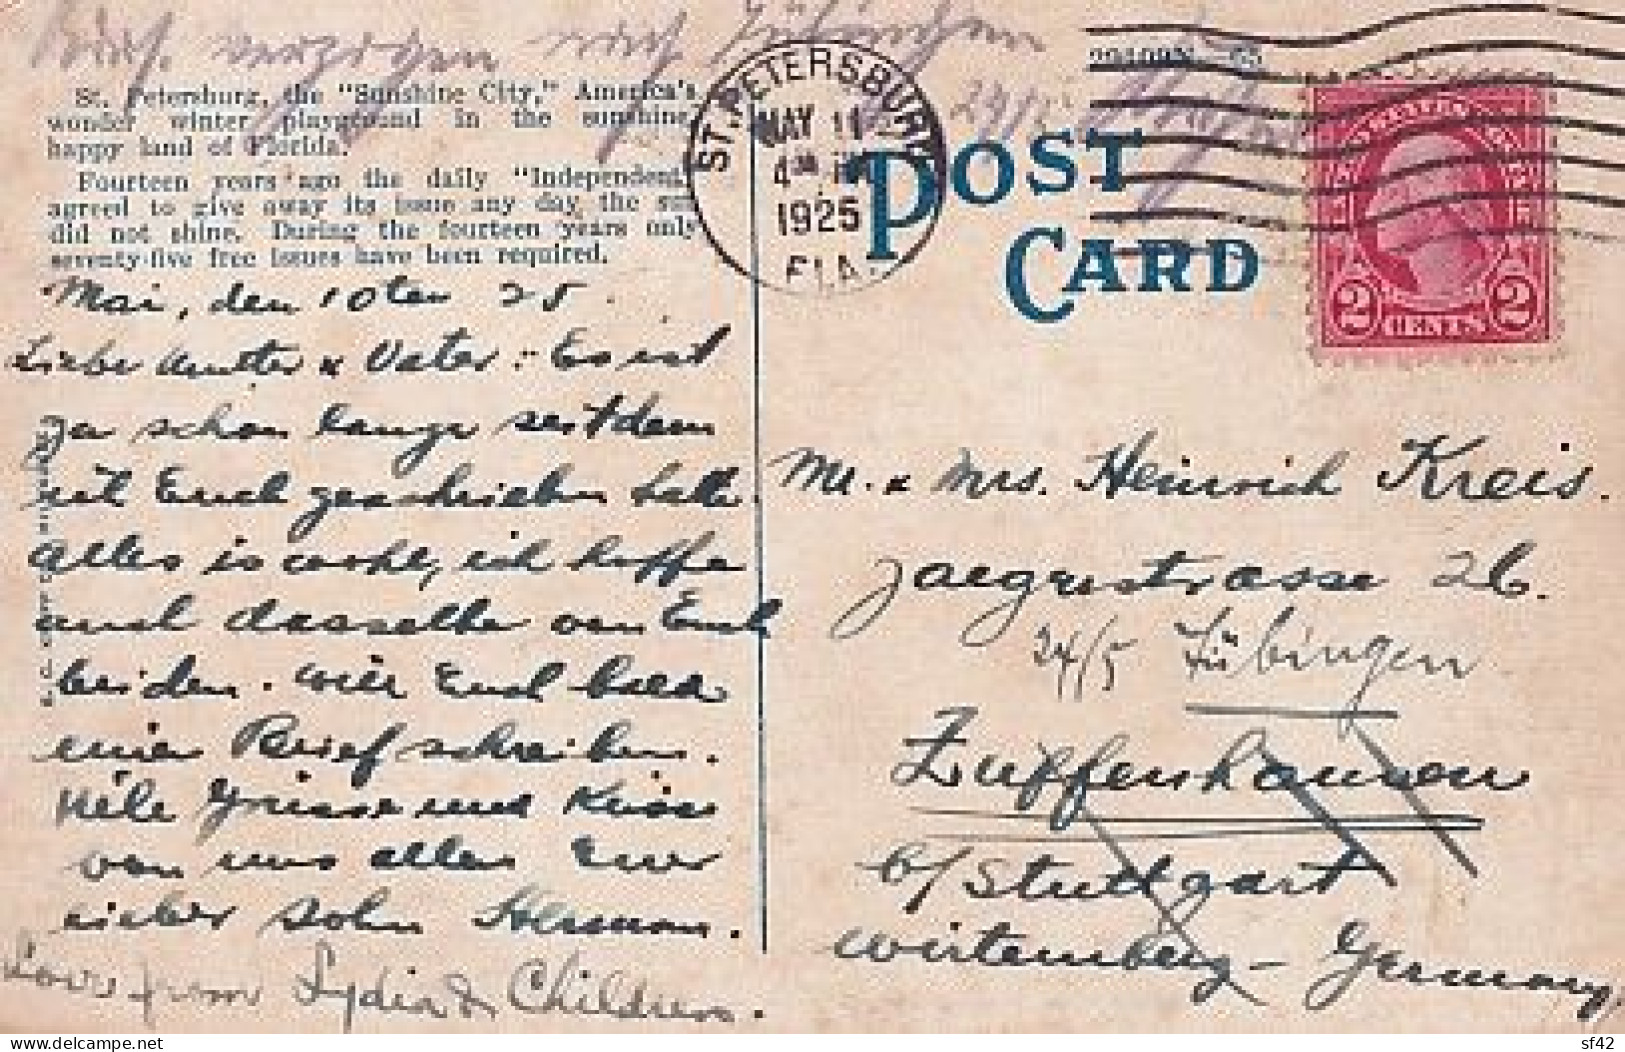 verzogen nach Tübingen
St. Petersburg, the "Sunshine City," America's
wonder winter playground in the sunshine,
happy land of Florida.
Fourteen years ago the daily "Independent,"
agreed to give away its issue any day the sun
did not shine. During the fourteen years only
seventy-five free issues have been required.
ST. PETERSBURG
MAY 11
4
1925
FLA.
POST
CARD
2 CENTS 2
Mai, den 10ten 25.
Liebe Mutter & Vater: Es ist
ja schon lange seitdem
ich Euch geschrieben habe.
Alles is wohl, ich hoffe
auch dasselbe von Euch
beiden. will Euch bald
einen Brief schreiben.
Viele Grüsse und Küsse
von uns allen Euer
lieber Sohn Herman.
Love from Lydia & Children.
Mr. & Mrs. Heinrich Kreis.
Jaegerstrasse 26.
24/5 Tübingen
Zuffenhausen
b/Stuttgart
Würtemberg - Germany
delcampe.net
sf42